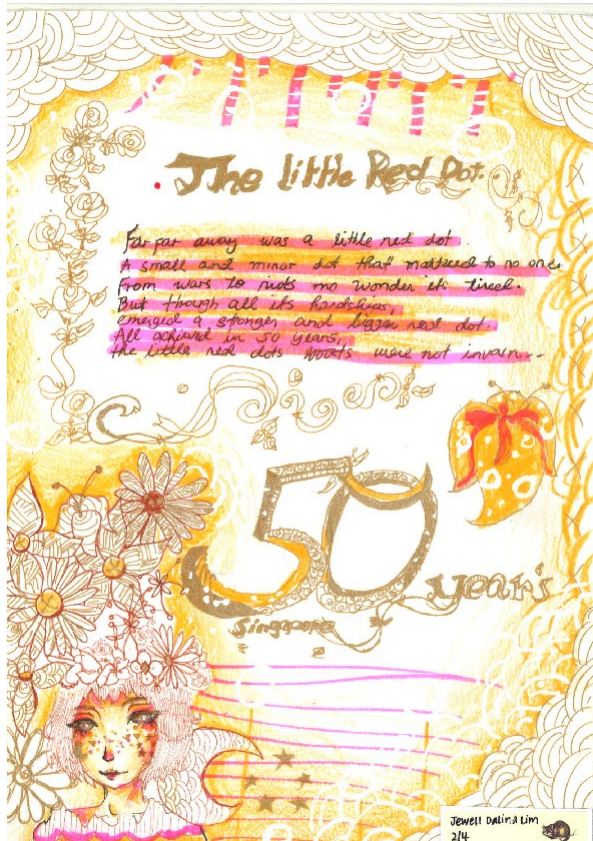 The little Red Dot.
Far far away was a little red dot.
A small and minor dot that mattered to no one.
From wars to riots no wonder its tired.
But though all its hardships,
emerged a stronger and bigger red dot.
All achived in 50 years,
the little red dots were not invain...
50
years
Singapore
Jewell Dalind Lim
2/4